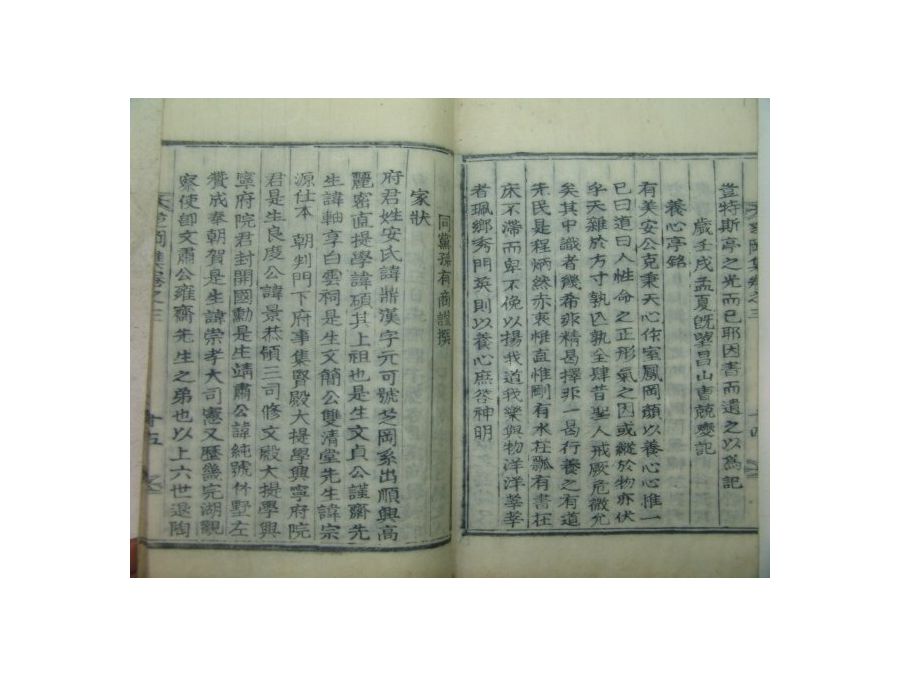 豈特斯亭之光而已耶因書而遺之以爲記
歲壬戌孟夏旣望昌山曺兢燮記
養心亭銘
有美安公克秉天心作室鳳岡顔以養心心惟一
已曰道曰人性命之正形氣之因或縱於物亦伏
乎天雜於方寸孰匹孰全肆昔聖人戒厥危微允
矣其中識者幾希非精曷擇非一曷行養之有道
先民是程炳然赤衷惟直惟剛有水在瓢有書在
床不滯而卑不俛以揚我道我樂與物洋洋莘莘
者珮鄉秀門英則以養心庶答神明
家狀
同黨孫有商謹撰
府君姓安氏諱鼎漢字元可號芝岡系出順興高
麗密直提學諱碩其上祖也是生文貞公謹齋先
生諱軸享白雲祠是生文簡公雙淸堂先生諱宗
源仕本 朝判門下府事集賢殿大提學興寧府院
君是生良度公諱景恭領三司修文殿大提學興
寧府院君封開國勳是生靖肅公諱純號休墅左
贊成奉朝賀是生諱崇孝大司憲又歷畿完湖觀
察使卽文肅公雍齋先生之弟也以上六世退陶
芝岡集卷之三
十四
十五